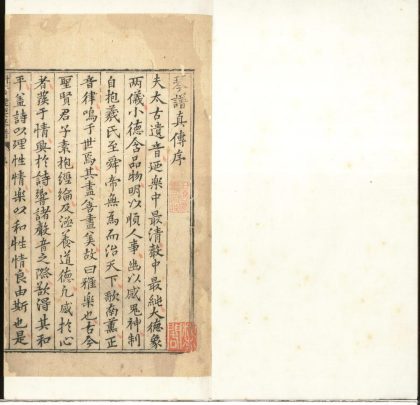 琴譜真傳序
夫太古遺音廼樂中最清教中最純大德象
两儀小德含品物明以順人事幽以感鬼神制
自抱羲氏至舜帝無為而治天下歌南薫正
音律鳴于世爲其盡善盡美故曰雅樂也古今
聖賢君子素抱經綸及涵養道德凢感於心
者蕟于情興於詩響諸數音之際歆得其和
平盖詩以理性情樂以和牲情良由斯也是